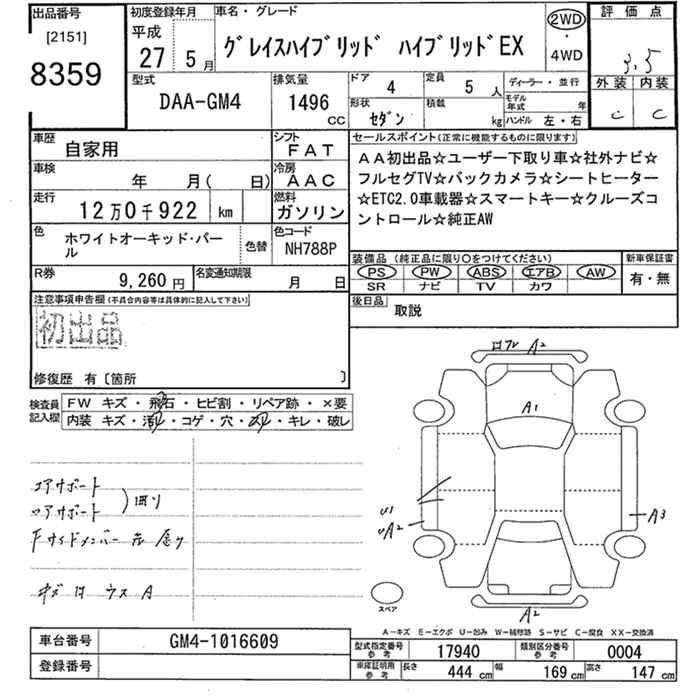 出品番号
[2151]
8359
初度登録年月
平成
27 5月
車名・グレード
グレイスハイブリッド ハイブリッドEX
2WD
・
4WD
評価点
3.5
外装 内装
C C
型式
DAA-GM4
排気量
1496 CC
ドア 4
定員 5 人
形状 セダン
積載 kg
ディーラー・並行
モデル年式 年
ハンドル 左・右
車歴 自家用
シフト FAT
車検 年 月( 日)
冷房 AAC
走行 12万0千922 km
燃料 ガソリン
色 ホワイトオーキッド・パール
色替
色コード NH788P
R券 9,260円
名変通知期限 月 日
セールスポイント(正常に機能するものに限ります)
AA初出品☆ユーザー下取り車☆社外ナビ☆
フルセグTV☆バックカメラ☆シートヒーター
☆ETC2.0車載器☆スマートキー☆クルーズコ
ントロール☆純正AW
装備品(純正品に限り○をつけてください)
新車保証書
PS PW ABS エアB AW
SR ナビ TV カワ
有・無
後日品 取説
注意事項申告欄(不具合内容等は具体的に記入して下さい)
初出品
修復歴 有〔箇所 〕
検査員記入欄
FW キズ・飛石・ヒビ割・リペア跡・×要
内装 キズ・汚れ・コゲ・穴・スレ・キレ・破レ
コアサポート
ロアサポート
曲り
Fサイドメンバー
キズ
ウスA
A2
A1
U1
A2
A3
A2
スペア
A-キズ E-エクボ U-凹み W-補修跡 S-サビ C-腐食 XX-交換済
車台番号 GM4-1016609
登録番号
型式指定番号参考 17940
類別区分番号参考 0004
車庫証明用参考 長さ 444 cm 幅 169 cm 高さ 147 cm